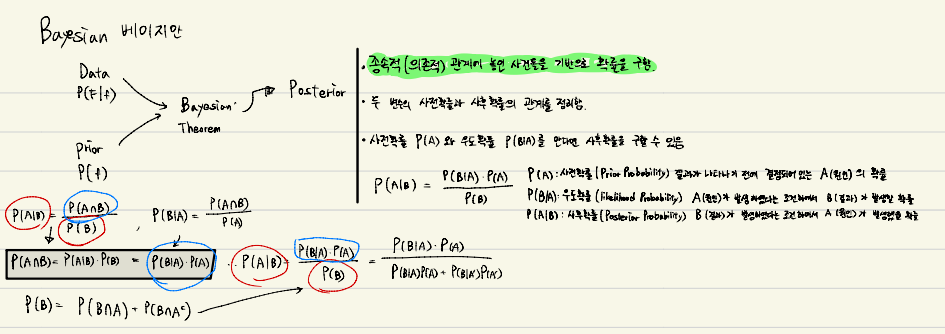 Bayesian 베이지안
Data
P(F|f)
Bayesian
Theorem
Posterior
prior
P(f)
• 종속적(의존적) 관계에 놓인 사건들을 기반으로 확률을 구함.
• 두 변수의 사전확률과 사후확률의 관계를 정리함.
• 사전확률 P(A)와 우도확률 P(B|A)를 안다면 사후확률을 구할 수 있음
P(A|B) = P(B|A)·P(A) / P(B)
P(A): 사전확률(Prior Probability) 결과가 나타나기 전에 결정되어있는 A(원인)의 확률
P(B|A): 우도확률(Likelihood Probability) A(원인)가 발생하였다는 조건하에서 B(결과)가 발생할 확률
P(A|B): 사후확률(Posterior Probability) B(결과)가 발생하였다는 조건하에서 A(원인)가 발생했을 확률
P(A|B) = P(A∩B) / P(B) , P(B|A) = P(A∩B) / P(A)
P(A∩B) = P(A|B)·P(B) = P(B|A)·P(A) ∴ P(A|B) = P(B|A)·P(A) / P(B) = P(B|A)·P(A) / P(B|A)P(A) + P(B|Aᶜ)P(Aᶜ)
P(B) = P(B∩A) + P(B∩Aᶜ)